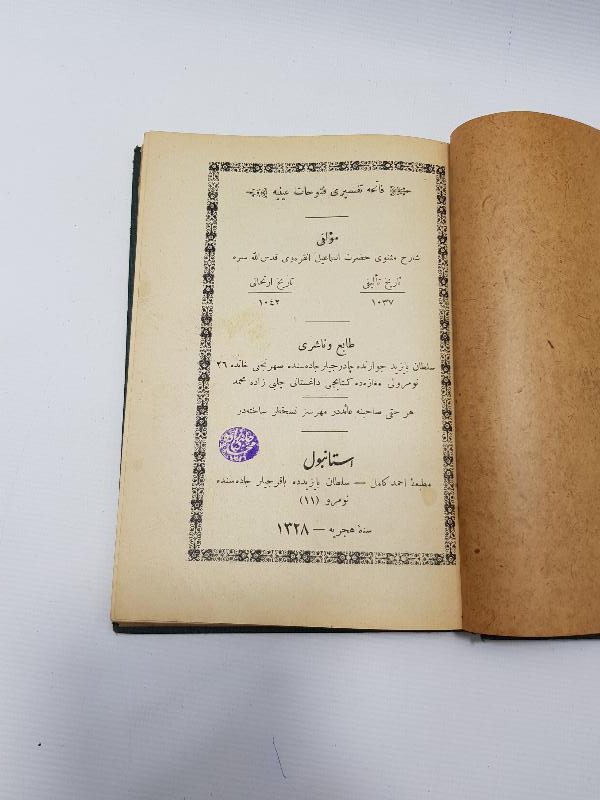 فاتحه تفسيرى فتوحات عينيه
مؤلفى
شارح مثنوى حضرت اسماعيل انقره‌وى قدس الله سره
تاريخ تأليفى
تاريخ ارتحالى
١٠٣٧
١٠٤٢
طابع و ناشرى
سلطان بايزيد جوارنده چادرجيلر جاده‌سنده صهرنجى خانده ٢٦
نومرولى مغازه‌ده كتابجى داغستانى چلبى زاده محمد
هر حقى صاحبنه عائددر مهرسز نسخه‌لر ساخته‌در
استانبول
مطبعهٔ احمد كامل — سلطان بايزيدده باقرجيلر جاده‌سنده
نومرو (١١)
سنهٔ هجريه — ١٣٢٨